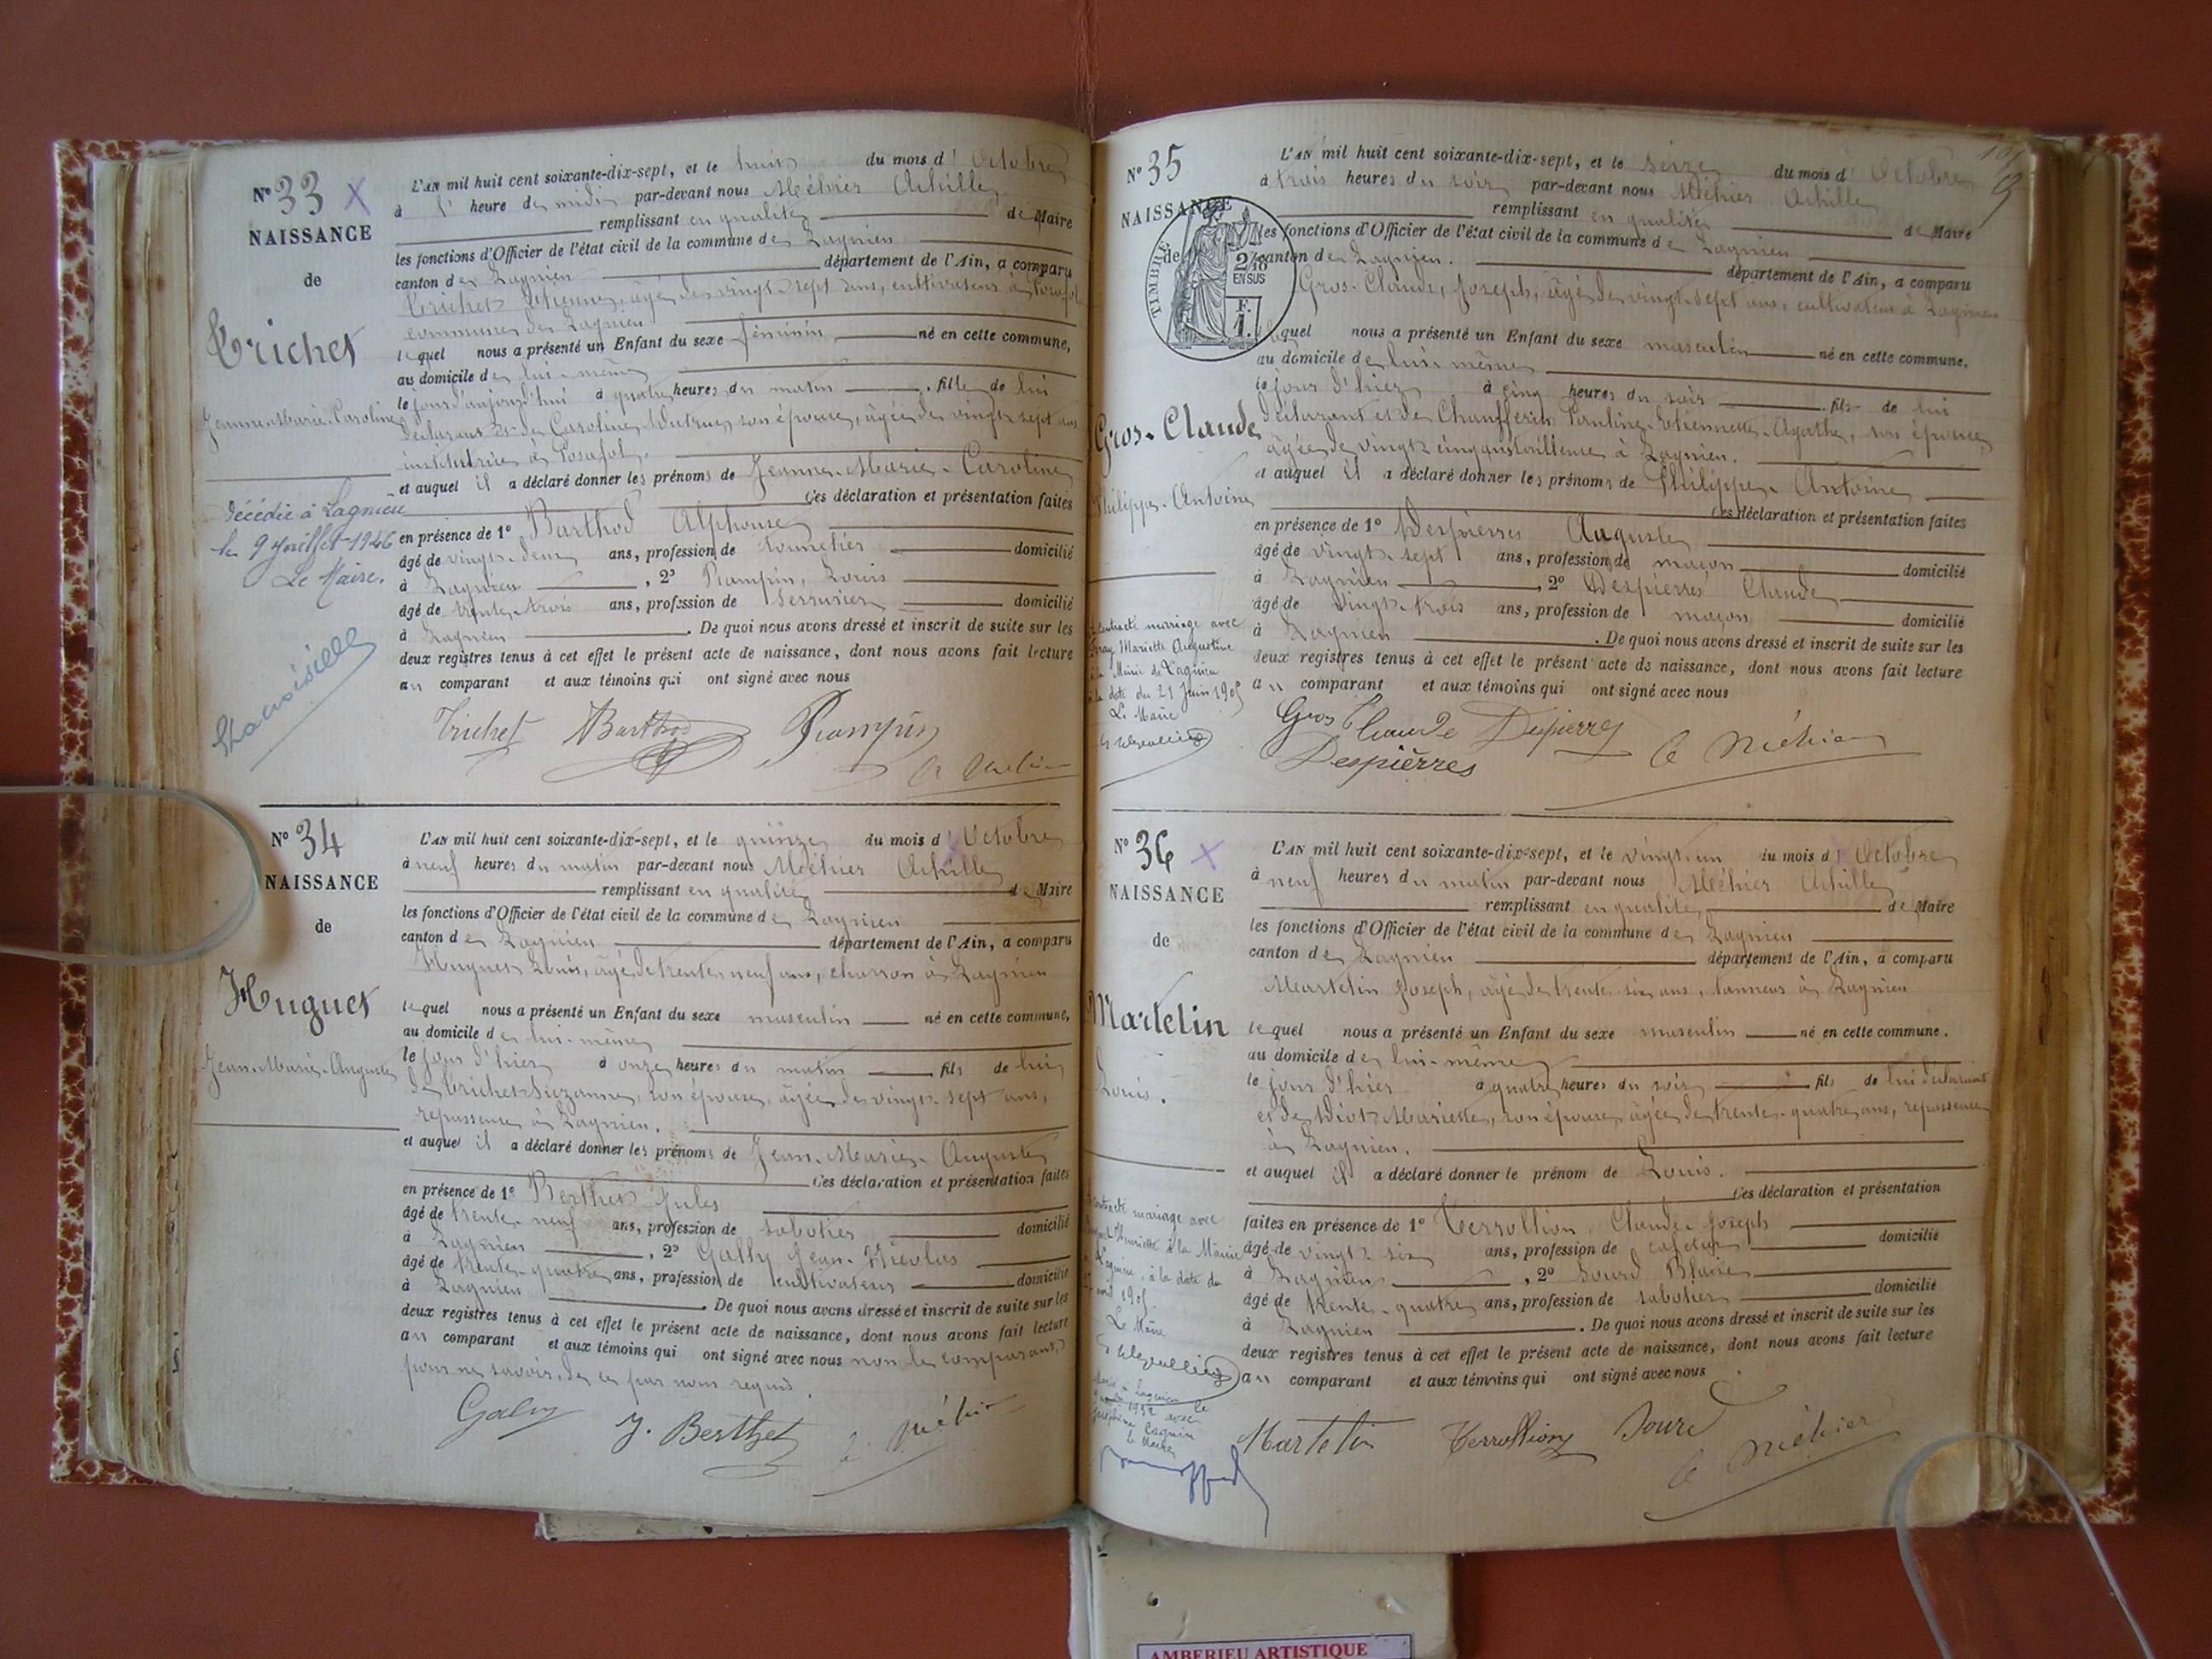 N° 33 X
NAISSANCE
de
Trichet
Jeanne-Marie-Caroline
Décédée à Lagnieu
le 9 Juillet 1946
Le Maire.
L'AN mil huit cent soixante-dix-sept, et le huit du mois d'Octobre
à 1' heure de midi par-devant nous Méhier Achille
remplissant en qualité de Maire
les fonctions d'Officier de l'état civil de la commune de Lagnieu
canton de Lagnieu département de l'Ain, a comparu
Trichet Etienne, âgé de vingt-sept ans, cultivateur à Posafol
commune de Lagnieu
lequel nous a présenté un Enfant du sexe féminin né en cette commune,
au domicile de lui-même
le jour d'aujourd'hui à quatre heures du matin fille de lui
déclarant et de Caroline son épouse, âgée de vingt-sept ans
institutrice à Posafol.
et auquel il a déclaré donner les prénoms de Jeanne-Marie-Caroline
Ces déclaration et présentation faites
en présence de 1° Barthod Alphonse
âgé de vingt-deux ans, profession de domicilié
à Lagnieu , 2° Rampin, Louis
âgé de trente-trois ans, profession de serrurier domicilié
à Lagnieu . De quoi nous avons dressé et inscrit de suite sur les
deux registres tenus à cet effet le présent acte de naissance, dont nous avons fait lecture
au comparant et aux témoins qui ont signé avec nous
Trichet Barthod Rampin
N° 34
NAISSANCE
de
Huguet
Jean-Marie-Auguste
L'AN mil huit cent soixante-dix-sept, et le quinze du mois d'Octobre
à neuf heures du matin par-devant nous Méhier Achille
remplissant en qualité de Maire
les fonctions d'Officier de l'état civil de la commune de Lagnieu
canton de Lagnieu département de l'Ain, a comparu
Huguet Louis, âgé de trente-neuf ans, charron à Lagnieu
lequel nous a présenté un Enfant du sexe masculin né en cette commune,
au domicile de lui-même
le jour d'hier à onze heures du matin fils de lui
de Trichet Suzanne, son épouse, âgée de vingt-sept ans,
repasseuse à Lagnieu.
et auquel il a déclaré donner les prénoms de Jean-Marie-Auguste
Ces déclaration et présentation faites
en présence de 1° Berthet Jules
âgé de trente-neuf ans, profession de sabotier domicilié
à Lagnieu , 2° Gally Jean-Nicolas
âgé de trente-quatre ans, profession de cultivateur domicilié
à Lagnieu . De quoi nous avons dressé et inscrit de suite sur les
deux registres tenus à cet effet le présent acte de naissance, dont nous avons fait lecture
au comparant et aux témoins qui ont signé avec nous non le comparant,
pour ne savoir, de ce par nous requis.
Galy J. Berthet A. Méhier
N° 35
NAISSANCE
de
TIMBRE
2/10
EN SUS
F.
1.
Gros-Claude
Philippe-Antoine
contracté mariage avec
Mariette Augustine
Mairie de Lagnieu
date du 21 Juin 1905
Le Maire
L'AN mil huit cent soixante-dix-sept, et le seize du mois d'Octobre
à trois heures du soir par-devant nous Méhier Achille
remplissant en qualité de Maire
les fonctions d'Officier de l'état civil de la commune de Lagnieu
canton de Lagnieu. département de l'Ain, a comparu
Gros-Claude, Joseph, âgé de vingt-sept ans, cultivateur à Lagnieu
lequel nous a présenté un Enfant du sexe masculin né en cette commune.
au domicile de lui-même
le jour d'hier à cinq heures du soir fils de lui
déclarant et de Chaufferin Pauline-Etiennette-Agathe, son épouse
âgée de vingt-cinq ans tailleuse à Lagnieu.
et auquel il a déclaré donner les prénoms de Philippe-Antoine
Ces déclaration et présentation faites
en présence de 1° Despierres Auguste
âgé de vingt-sept ans, profession de maçon domicilié
à Lagnieu , 2° Despierres Claude
âgé de vingt-trois ans, profession de maçon domicilié
à Lagnieu . De quoi nous avons dressé et inscrit de suite sur les
deux registres tenus à cet effet le présent acte de naissance, dont nous avons fait lecture
au comparant et aux témoins qui ont signé avec nous
Gros Claude Despierres A Méhier
Despierres
N° 36 X
NAISSANCE
de
Martelin
Louis.
contracté mariage avec
Henriette à la Mairie
Lagnieu, à la date du
avril 1905
Le Maire
L'AN mil huit cent soixante-dix-sept, et le vingt-un du mois d'Octobre
à neuf heures du matin par-devant nous Méhier Achille
remplissant en qualité de Maire
les fonctions d'Officier de l'état civil de la commune de Lagnieu
canton de Lagnieu département de l'Ain, a comparu
Martelin Joseph, âgé de trente-six ans, tanneur à Lagnieu
lequel nous a présenté un Enfant du sexe masculin né en cette commune.
au domicile de lui-même
le jour d'hier à quatre heures du soir fils de lui déclarant
et de Mariette, son épouse âgée de trente-quatre ans, repasseuse
à Lagnieu.
et auquel il a déclaré donner le prénom de Louis.
Ces déclaration et présentation
faites en présence de 1° Terrollion Claude-Joseph
âgé de vingt-six ans, profession de domicilié
à Lagnieu , 2° Sourd Blaise
âgé de trente-quatre ans, profession de sabotier domicilié
à Lagnieu . De quoi nous avons dressé et inscrit de suite sur les
deux registres tenus à cet effet le présent acte de naissance, dont nous avons fait lecture
au comparant et aux témoins qui ont signé avec nous
Martelin Terrollion Sourd
A Méhier
AMBERIEU ARTISTIQUE